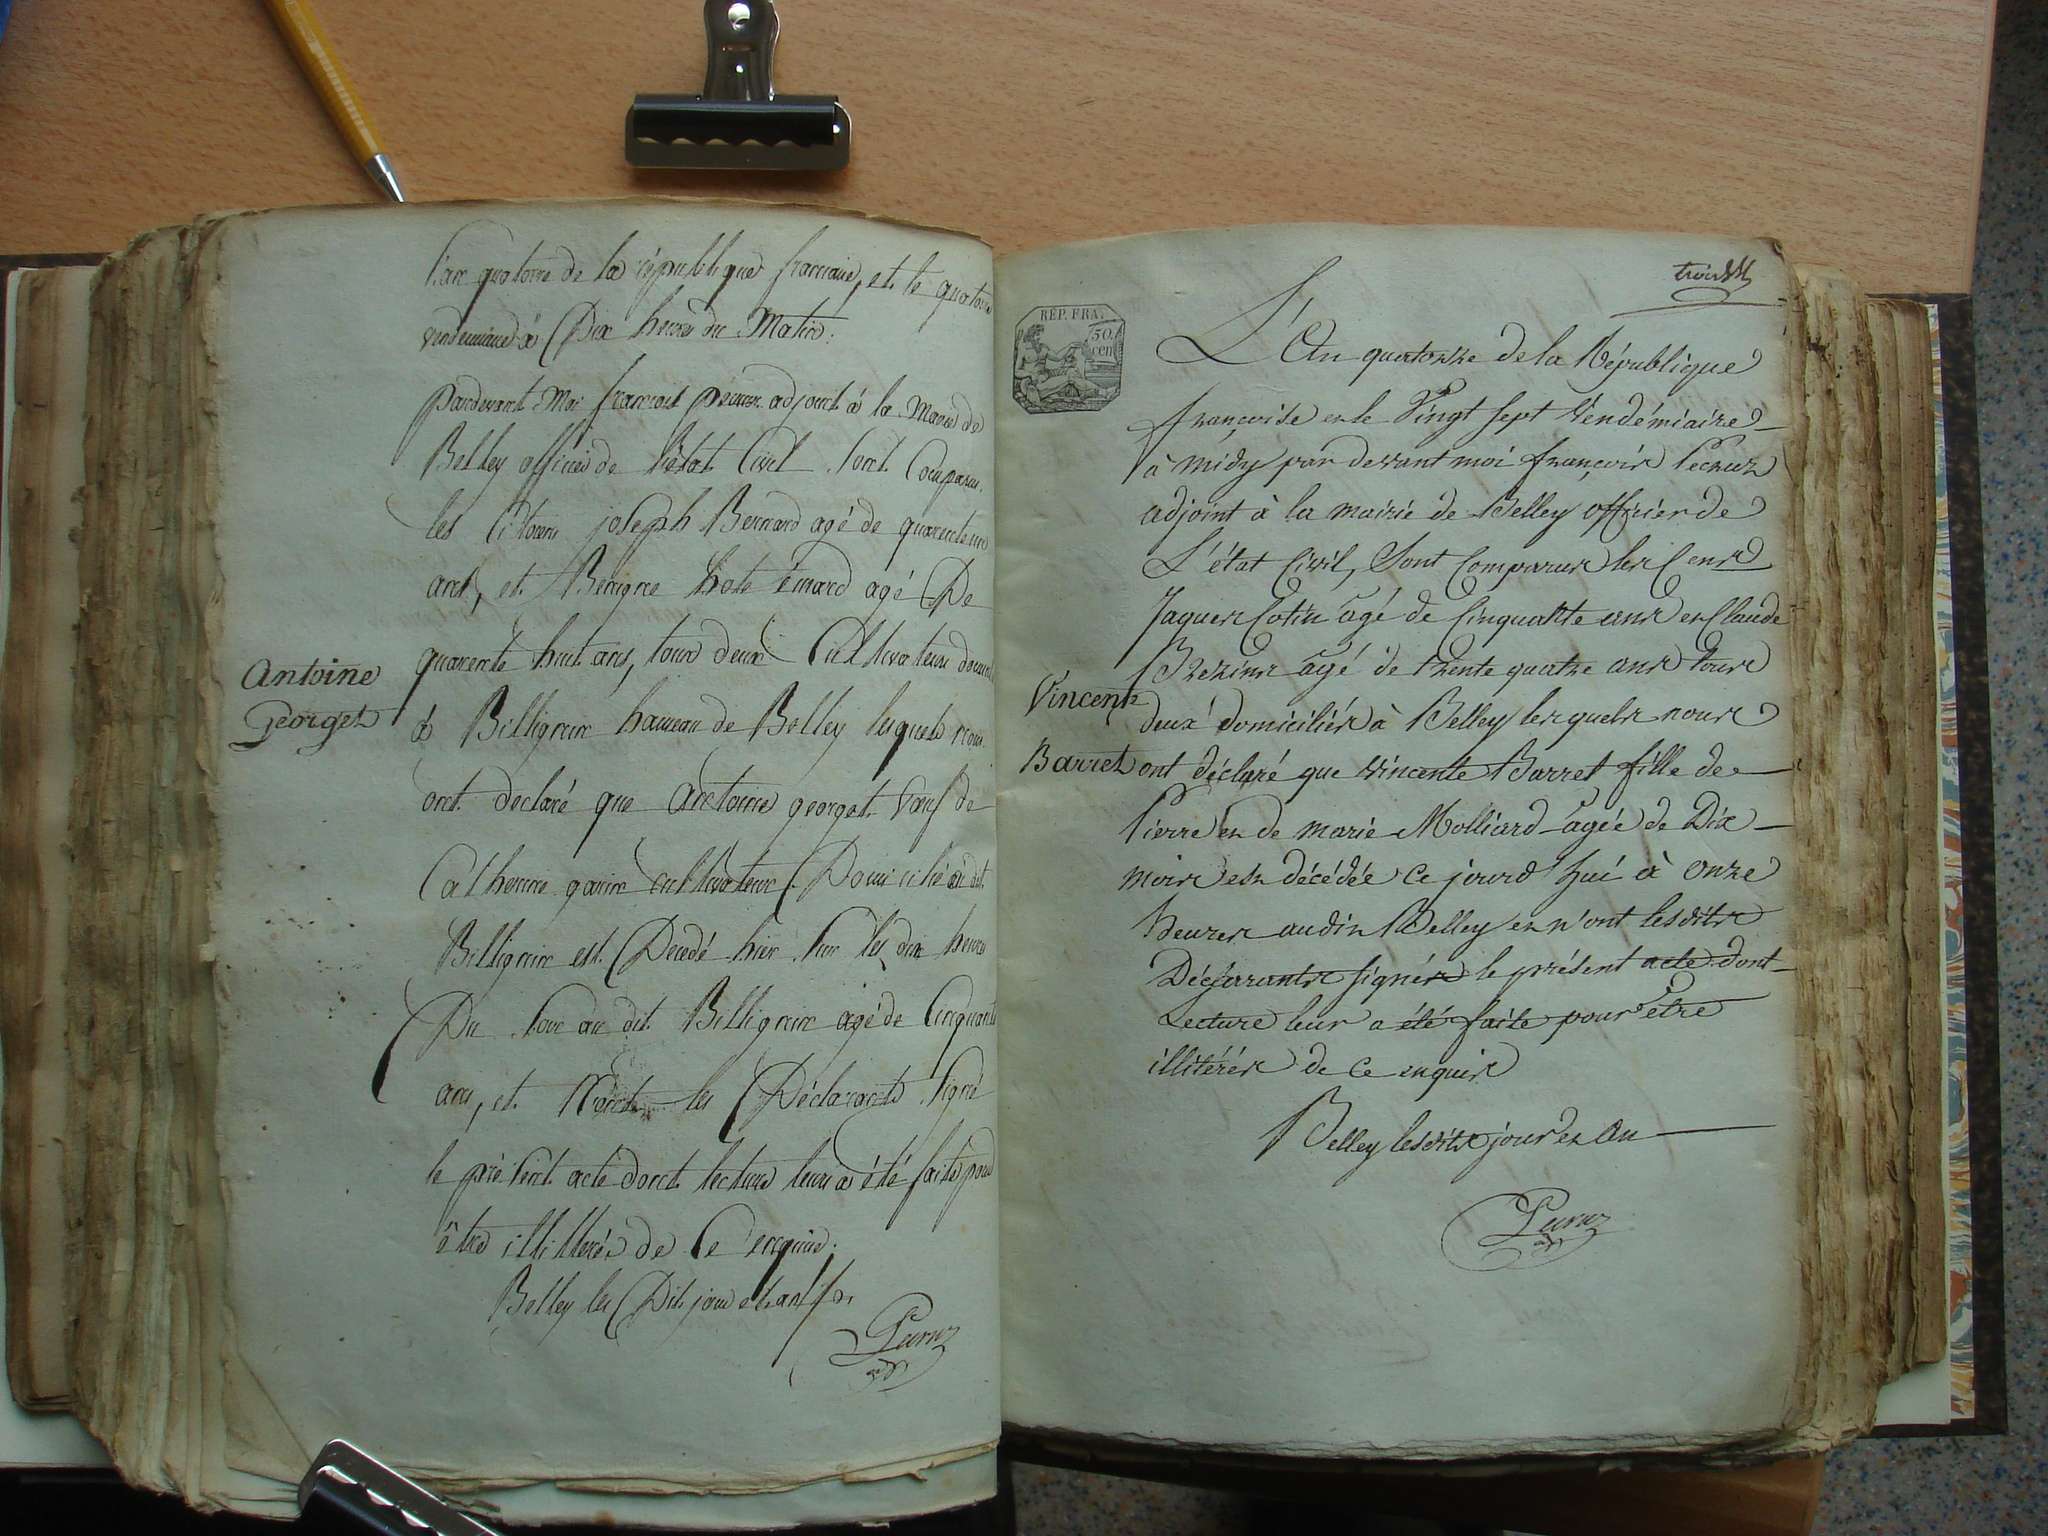 l'an quatorze de la république francaise, et le quatorze
vendemiaire à Dix heures du Matin.
pardevant Moi francois pecruz adjoint à la Mairie de
Belley officier de l'état Civil sont Comparus
les Citoiens joseph Bernard agé de quarente un
ans, et Benigne hote émard agé De
quarente huit ans, tous deux Cultivateurs domicilié
à Billignin hameau de Belley lesquels nous
ont declaré que Antoine georget veuf de
Catherine garin cultivateur Domicilié au dit
Billignin est Decedé hier sur les dix heures
Du soir au dit Billignin agé de Cinquante
ans, et n'ont les Déclarants signé
le présent acte dont lecture leurs a été faite pour
être illitterés de Ce enquis.
Belley les Dit jour et an
Pecruz
Antoine
Georget
REP. FRA.
50
cen
L'An quatorze de la République
françoise et le Vingt sept Vendémiaire
à midy par devant moi françois Pecruz
adjoint à la mairie de Belley officier de
L'état Civil, Sont Comparus les Cens
Jaques Cotin agé de Cinquante ans et Claude
Brezins agé de trente quatre ans tous
deux domiciliés à Belley lesquels nous
ont déclaré que vincente Barret fille de
Pierre et de marie Molliard agée de Dix
mois est décédée ce jourd'hui à onze
heures audit Belley et n'ont lesdits
Déclarants signés le présent acte dont
Lecture leur a été faite pour être
illitérés de ce enquis
Belley lesdits jour et an
Pecruz
Vincente
Barret